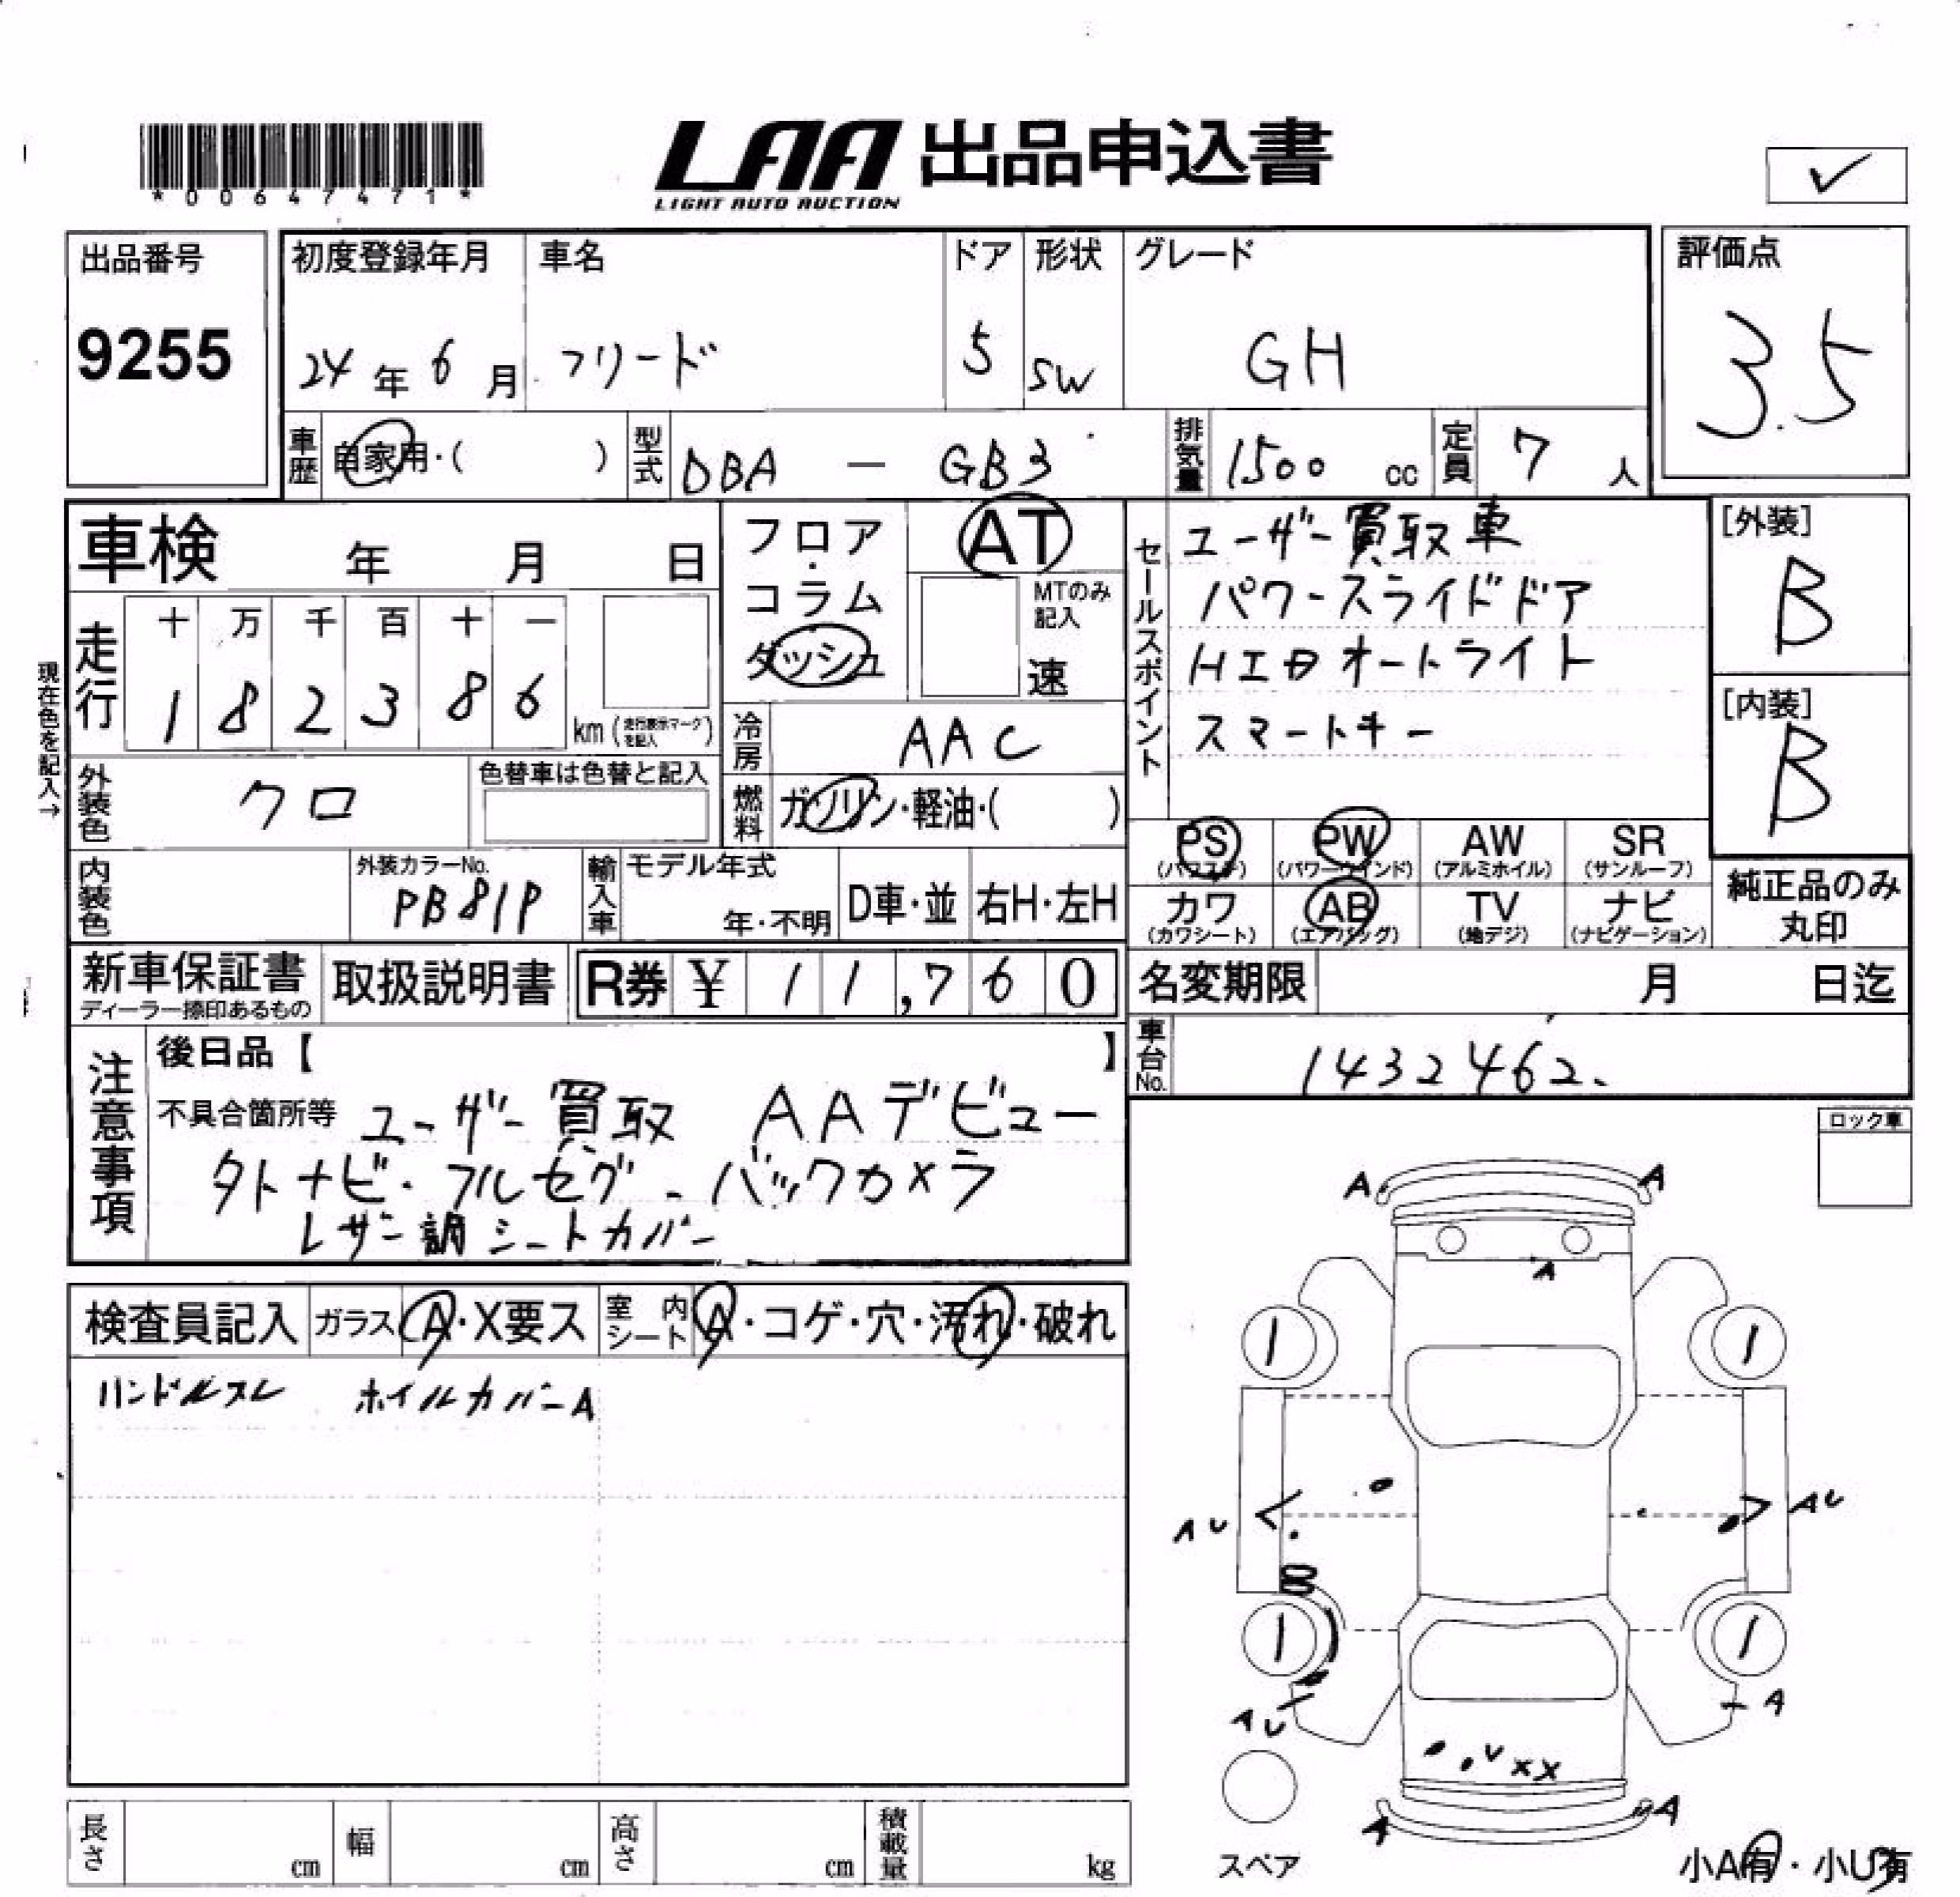 *00647471*
LAA 出品申込書
LIGHT AUTO AUCTION
出品番号
9255
初度登録年月 車名 ドア 形状 グレード
24年6月 フリード 5 SW GH
評価点
3.5
車歴 自家用・( ) 型式 DBA — GB3 排気量 1500 cc 定員 7 人
車検 年 月 日
フロア・コラム
ダッシュ
AT
MTのみ記入
速
セールスポイント
ユーザー買取車
パワースライドドア
HIDオートライト
スマートキー
[外装]
B
[内装]
B
走行 十 万 千 百 十 一
1 8 2 3 8 6 km (走行表示マークを記入)
現在色を記入→
冷房 AAC
外装色 クロ 色替車は色替と記入
燃料 ガソリン・軽油・( )
PS (パワステ) PW (パワーウインド) AW (アルミホイル) SR (サンルーフ)
カワ (カワシート) AB (エアバッグ) TV (地デジ) ナビ (ナビゲーション)
純正品のみ
丸印
内装色 外装カラーNo. PB81P 輸入車 モデル年式 年・不明 D車・並 右H・左H
新車保証書 ディーラー捺印あるもの 取扱説明書 R券 ¥ 11,760
名変期限 月 日迄
車台No. 1432462.
注意事項
後日品【 】
不具合箇所等 ユーザー買取 AAデビュー
外ナビ・フルセグ・バックカメラ
レザー調シートカバー
ロック車
検査員記入 ガラス A・X要ス 室内シート A・コゲ・穴・汚れ・破れ
ハンドルスレ ホイルカバーA
A A
A
AU AU
AU A
U XX
A A
スペア
小A有・小U有
長さ cm 幅 cm 高さ cm 積載量 kg